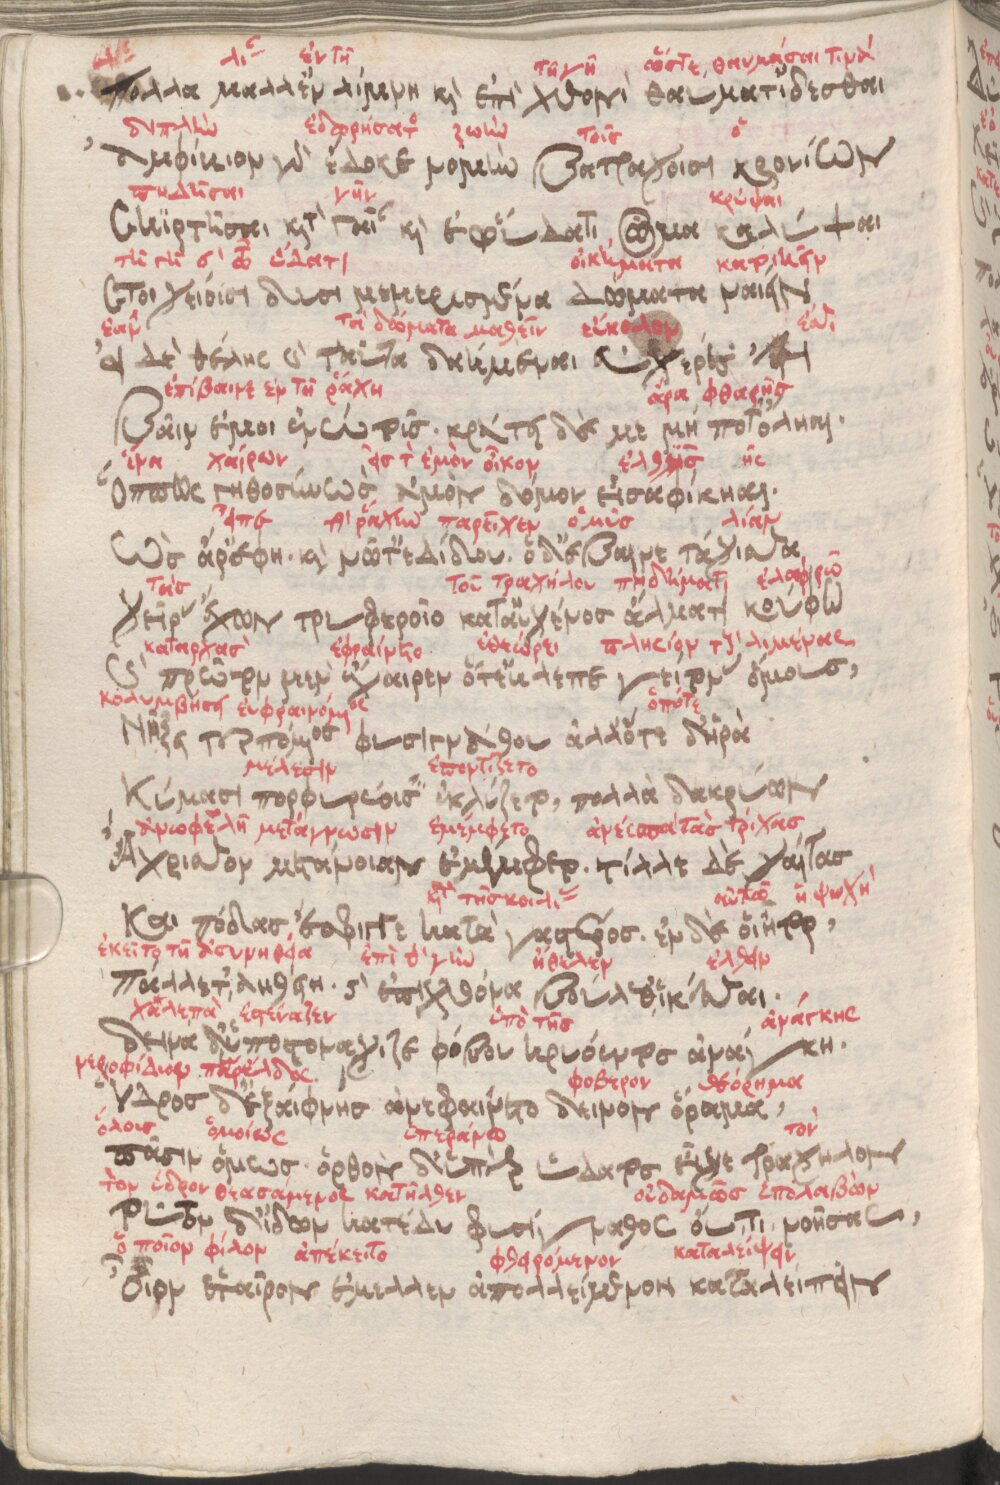 λί ἐν τῆ τῆ γῆ ὥστε θαυμάσαι
πολλὰ μαλ' ἐν λίμνη κ ἐπὶ χθονὶ θαύματ' ἰδέσθαι
διπλὴν ἐδωρήσατο ζωὴν τοῖς ὁ
ἀμφίβιον γὰρ ἔδωκε νομὴν βατράχοισι κρονίων
πηδῆσαι γῆν κρύψαι
σκιρτῆσαι κατὰ γαῖαν κ ἐφ' ὕδατι σῶμα καλύψαι
οἰκήματα κατοικεῖν
στοιχείοισι δυσὶ μεμερισμένα δώματα ναίειν
ἐὰν τὰ δώματα μαθεῖν εὔκολον
εἰ δὲ θέλης κ ταῦτα δαήμεναι εὐχερές
ἐπίβαινε ἐν τῆ ῥάχη ἄρα φθαρῆς
βαῖν ἐμοὶ ἐν νώτοις. κράτει δέ με μή ποτ' ὄληαι.
ἵνα χαίρων εἰς τ ἐμὸν οἶκον ἔλθης
ὅππως γηθοσύνως ἐμὸν δόμον εἰσαφίκηαι.
εἶπε ῥάχιν παρεῖχεν ὁ μῦς λίαν
ὣς ἄρ' ἔφη. κ νῶτ' ἐδίδου. ὁ δ' ἔβαινε τάχιστα
τὰς τοῦ τραχήλου πηδήματι ἐλαφρῶ
χεῖρας ἔχων τρυφεροῖο κατ' αὐχένος ἅλματι κούφω
καταρχὰς εὐφραίνετο ἐθεώρει πλησίον λιμένας
κ πρῶτον μὲν ἔχαιρεν ὅτ' ἔβλεπε γείτονας ὅρμους,
κολυμβήσει εὐφραινόμενος ὁπότε
νήξει τερπόμενος φυσιγνάθου ἀλλ' ὅτε δή ῥα
μέλεσιν ἐποντίζετο
κύμασι πορφυρέοισιν ἐκλύζετο, πολλὰ δακρύων
ἀνωφελῆ μετάγνωσιν ἐμέμφετο ἀνέσπα τὰς τρίχας
ἄχρηστον μετάνοιαν ἐμέμφετο. τίλλε δὲ χαίτας
τῆς κοιλί αὐτῶ ἡ ψυχὴ
καὶ πόδας ἔσφιγγε κατὰ γαστρός. ἐν δέ οἱ ἦτορ,
ἐκεῖτο τῆ ἀσυνηθεία ἐπὶ γὴν ἤθελεν ἐλθεῖν
πάλλετ' ἀηθείη. κ ἐπὶ χθόνα βούλεθ' ἱκέσθαι.
χαλεπὰ ἐστέναζεν ὑπὸ τῆς ἀνάγκης
δεινὰ δ' ὑποστονάχιζε φόβου κρυόεντος ἀνάγκη.
νεροφίδιον φοβερὸν θεώρημα
ὕδρος δ' ἐξαίφνης ἀνεφαίνετο δεινὸν ὅραμα,
ὅλοις ὁμοίως ὑπεράνω τὸν
πᾶσιν ὁμῶς. ὀρθὸν δ' ὑπὲρ ὕδατος εἶχε τράχηλον
τὸν ὕδρον θεασάμενος κατῆλθεν οὐδαμῶς ὑπολαβὼν
τοῦτον δ' ἰδὼν κατέδυ φυσίγναθος οὔ τι νοήσας,
ὁποῖον φίλον ἀπέκειτο φθειρόμενον καταλείψειν
οἷον ἑταῖρον ἔμελλεν ἀπολλύμενον καταλείπειν